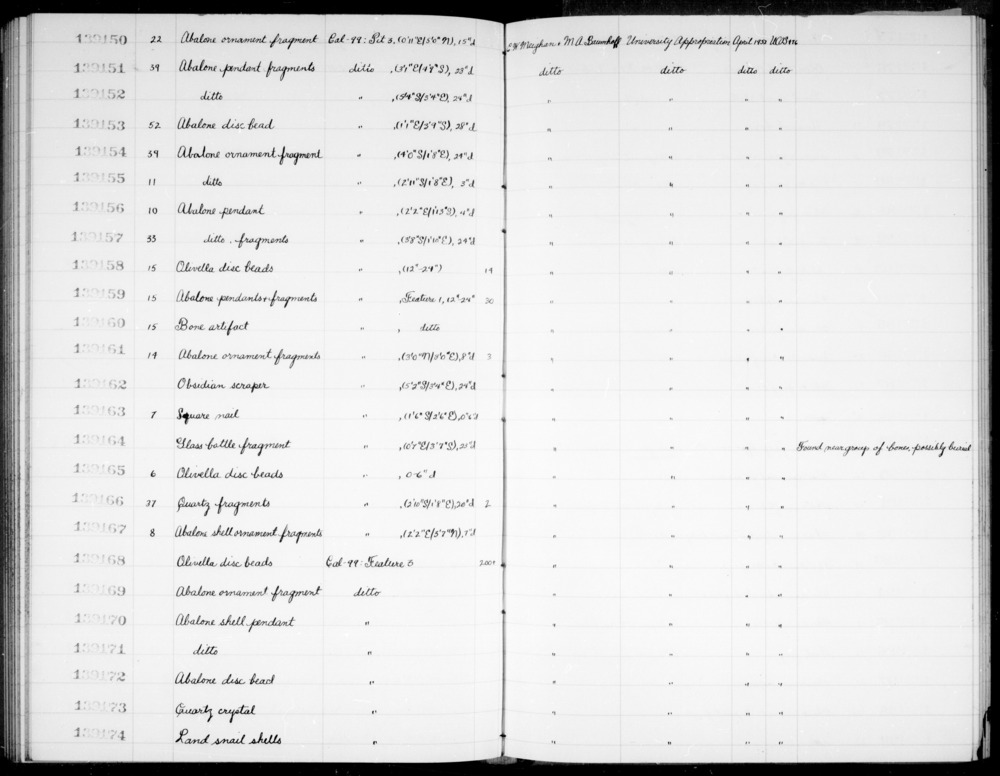 139150 22 Abalone ornament fragment Cal-99: Pit 3, (0'11"E/3'0"N), 15"d C.W. Meighan & M.A. Baumhoff University Appropriation April 1952
139151 39 Abalone pendant fragments ditto ditto ditto ditto ditto
139152 ditto " ,(5'4"S/3'4"E), 24"d " " " "
139153 52 Abalone disc bead " ,(1'1"E/3'9"S), 28"d " " " "
139154 39 Abalone ornament fragment " ,(4'0"S/1'8"E), 24"d " " " "
139155 11 ditto " ,(2'11"S/1'8"E), 3"d " " " "
139156 10 Abalone pendant " 4"d " " " "
139157 33 ditto, fragments " ,(3'8"S/1'10"E), 24"d " " " "
139158 15 Olivella disc beads " ,(12"-24") 14 " " " "
139159 15 Abalone pendants & fragments " ,Feature 1, 12"-24" 30 " " " "
139160 15 Bone artifact " , ditto " " " "
139161 14 Abalone ornament fragments " ,(3'0"N/3'0"E), 8"d 3 " " " "
139162 Obsidian scraper " ,(5'2"S/3'4"E), 24"d " " " "
139163 7 Square nail " ,(1'6"S/2'6"E), 0"-6"d " " " "
139164 Glass bottle fragment " " " " " Found near group of bones, possibly burial
139165 6 Olivella disc beads " , 0-6"d " " " "
139166 37 Quartz fragments " ,(2'10"S/1'8"E), 20"d 2 " " " "
139167 8 Abalone shell ornament fragments " ,(2'2"E/3'7"N), 7"d " " " "
139168 Olivella disc beads Cal-99: Feature 3 200+ " " " "
139169 Abalone ornament fragment ditto " " " "
139170 Abalone shell pendant " " " " "
139171 ditto " " " " "
139172 Abalone disc bead " " " " "
139173 Quartz crystal " " " " "
139174 Land snail shells " " " " "